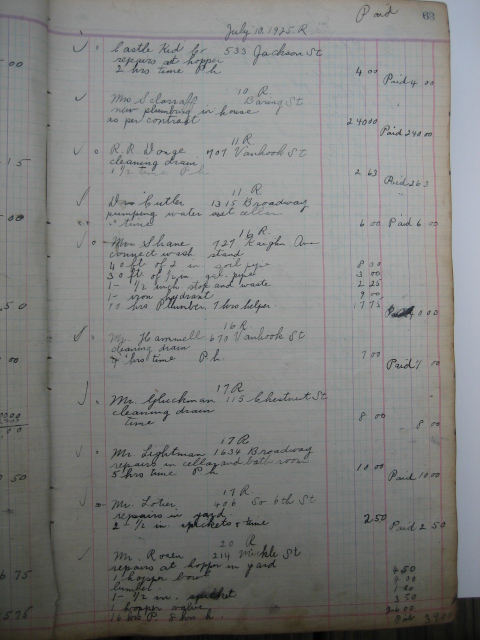 Paid 63
July 10. 1925. R
Castle Kid Co 533 Jackson St
repairs at hopper
2 hrs time P. h 4 00 Paid 4 00
10 R.
Mrs Baring St
new plumbing in house
as per contract 240 00 Paid 240 00
11 R
R. R Donge 707 Vanhook St
cleaning drain
1 1/2 time P h 2 63 Paid 2 63
11 R
Drs Cutler 1315 Broadway
pumping water out cellar
time 6 00 Paid 6 00
16 R.
Mrs Shane 727 Kaighn Ave
connect wash stand
40 ft of 2 in soil pipe 8 00
30 ft. of 1/2 in gal. pipe 3 00
1- 1/2 inch stop and waste 2 25
1- iron hydrant 9 00
hrs Plumber, 7 hrs helper 17 75 Paid
16 R
Mr. Hammell 670 Vanhook St
cleaning drain
hrs time P h. 7 00 Paid 7 00
17 R
Mr. Gluckman 115 Chestnut St
cleaning drain
time 8 00 8 00
17 R
Mr Lightman 1634 Broadway
repairs in cellar and bath room
5 hrs time P h 10 00 Paid 10 00
17 R
Mr. Lotier 406 So 6th St
repairs in yard
2 - 1/2 in spickets & time 2 50 Paid 2 50
20 R
Mr. Rosen 214 Mickle St
repairs at hopper in yard
1 hopper bowl 4 50
1- 1/2 in. spicket
1 hopper valve
16 hrs P 8 hrs h